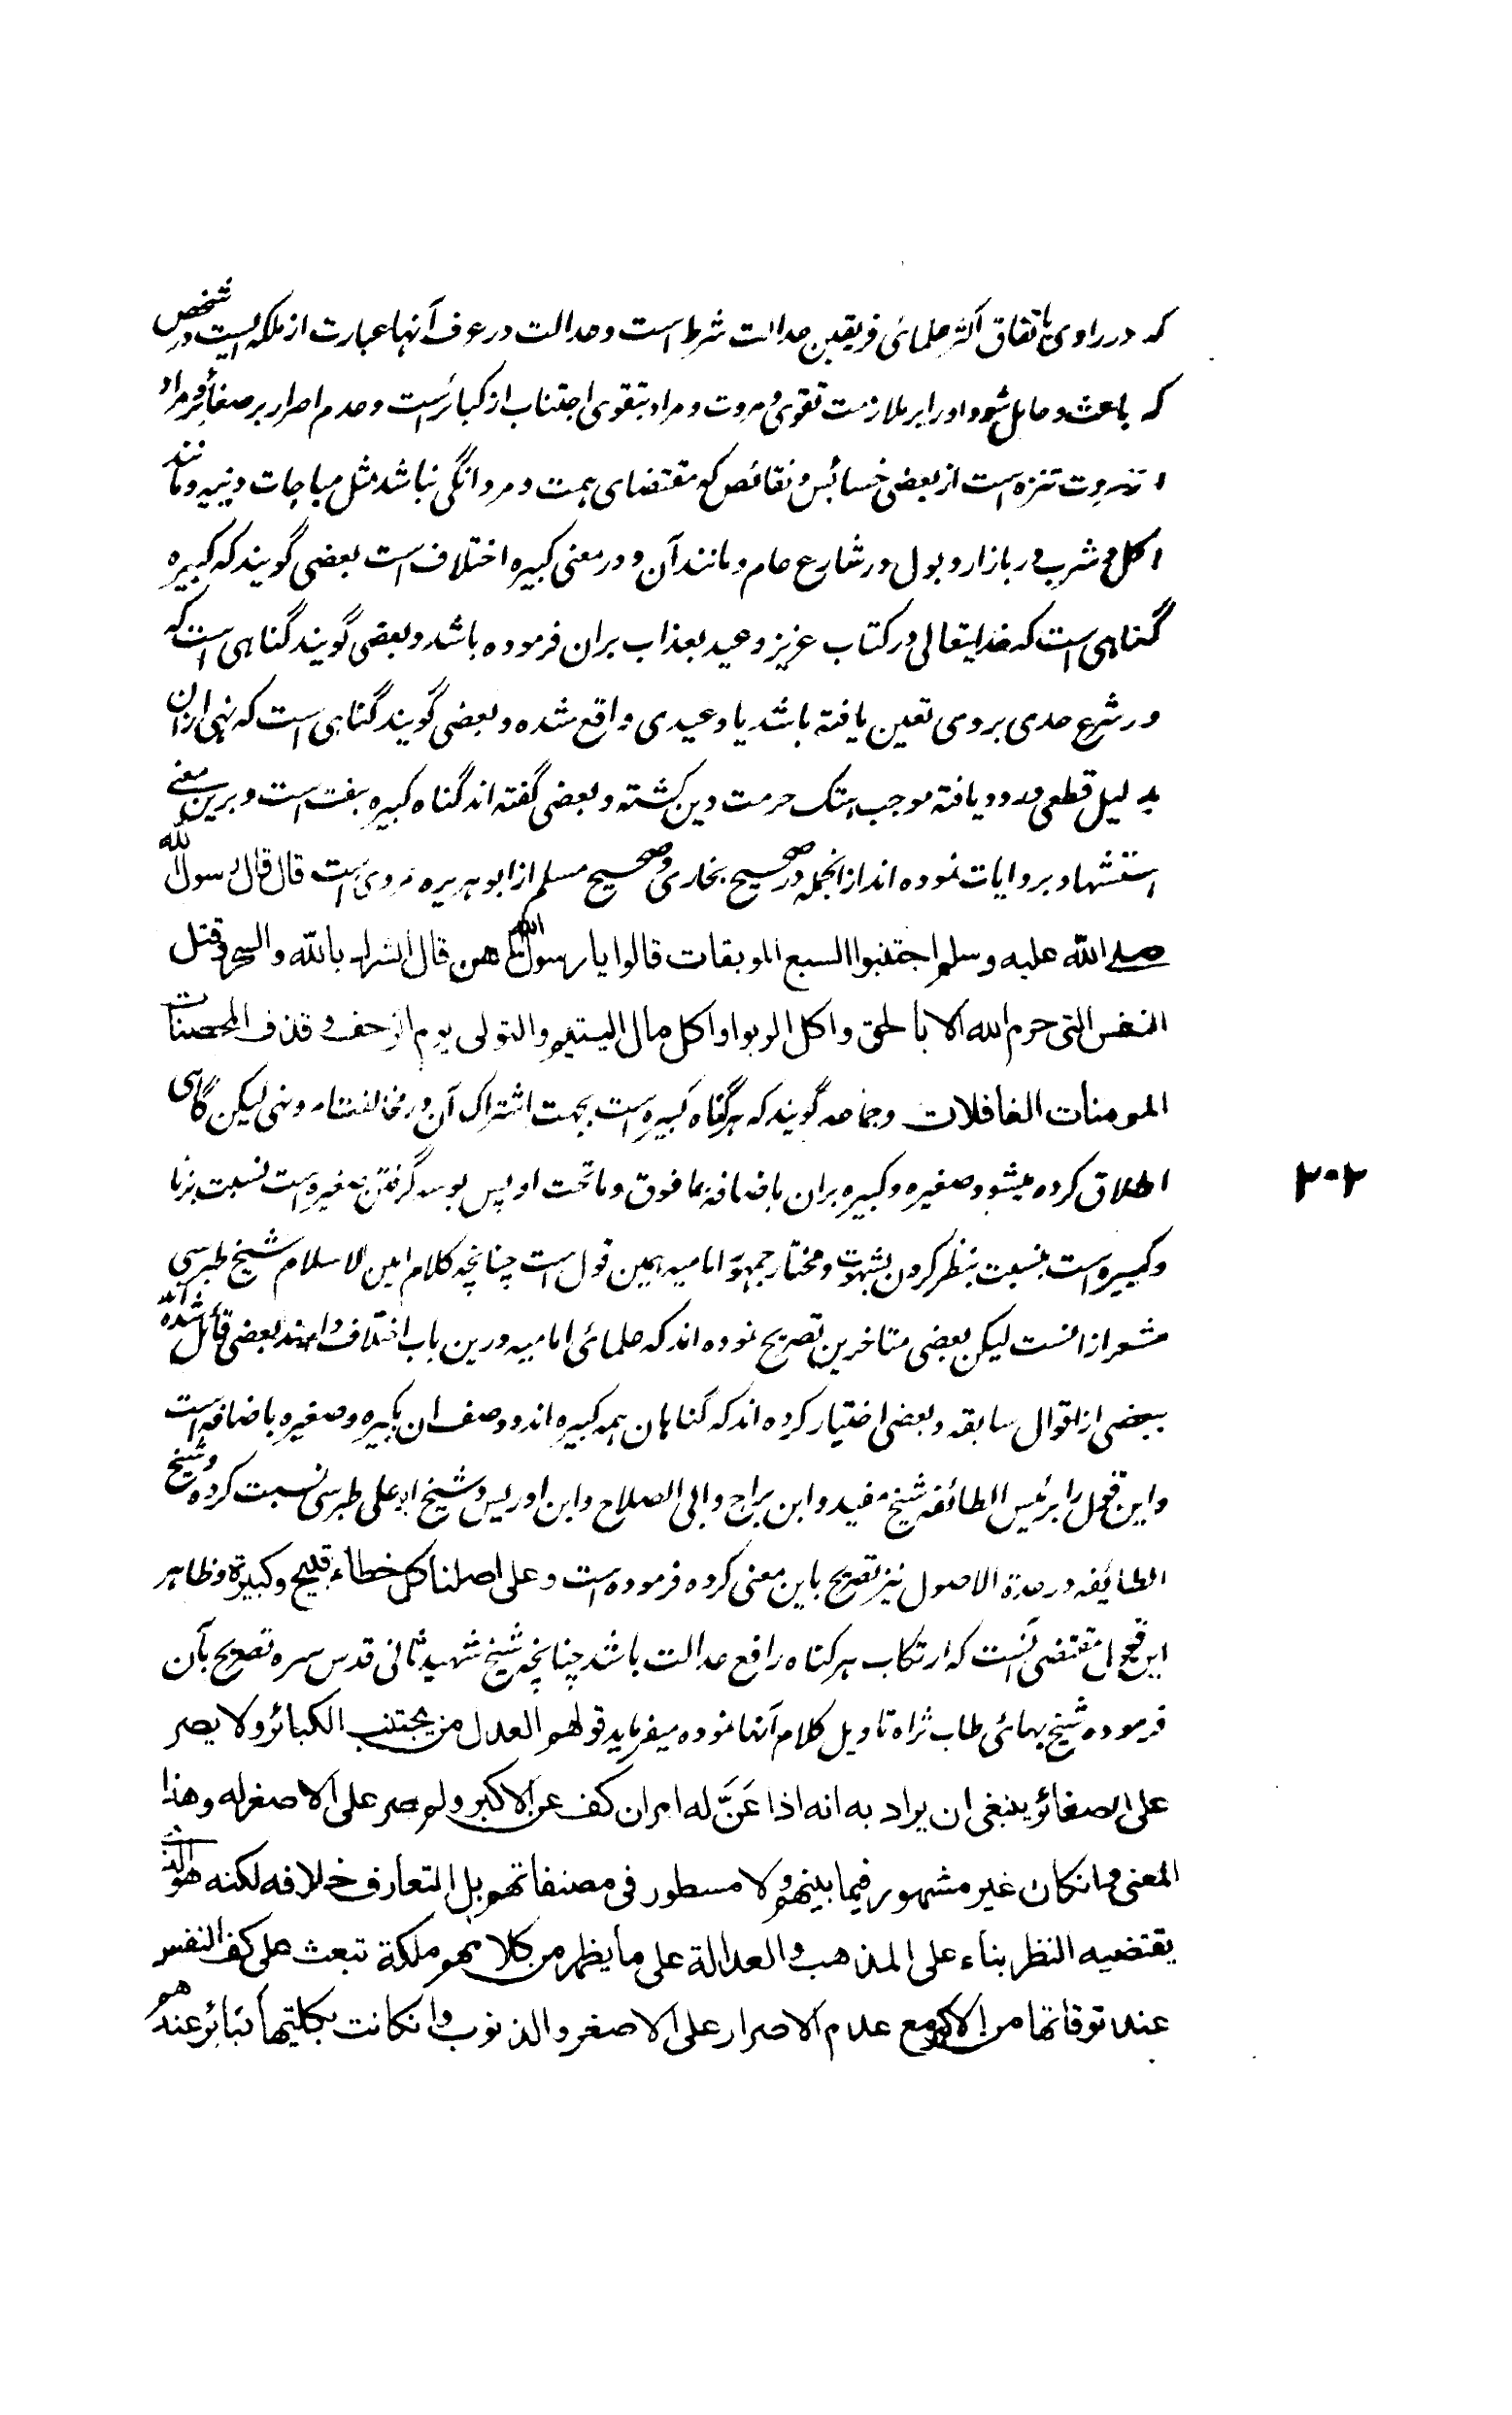 که در راوی باتفاق اکثر علمائی فریقین عدالت شرط است و عدالت در عرف آنها عبارت از ملکه ایست در شخص
که باعث و حامل شود او را بر ملازمت تقوی و مروت و مراد بتقوی اجتناب از کبائر است و عدم اصرار بر صغائر و مراد
از مروت تنزه است از بعضی خسائس و نقائص که مقتضای همت و مردانگی نباشد مثل مباحات دنیه و مانند
اکل و شرب در بازار و بول در شارع عام و مانند آن و در معنی کبیره اختلاف است بعضی گویند که کبیره
گناهی است که خدایتعالی در کتاب عزیز وعید بعذاب بران فرموده باشد و بعضی گویند گناهی است که
در شرع حدی بروی تعین یافته باشد یا وعیدی واقع شده و بعضی گویند گناهی است که نهی ازان
بدلیل قطعی ورود یافته موجب هتک حرمت دین گشته و بعضی گفته اند گناه کبیره هفت است و برین معنے
استشهاد بروایات نموده اند ازانجمله در صحیح بخاری و صحیح مسلم از ابو هریره مروی است قال قال رسول الله
صلے الله علیه وسلم اجتنبوا السبع الموبقات قالوا یا رسول الله ما هن قال الشرک بالله والسحر وقتل
النفس التی حرم الله الا بالحق واکل الربوا واکل مال الیتیم والتولی یوم الزحف وقذف المحصنات
المومنات الغافلات وجماعه گویند که هر گناه کبیره است بجهت اشتراک آن در مخالفت امر و نهی لیکن گاهی
اطلاق کرده میشود صغیره و کبیره بران باضافه بما فوق و ما تحت او پس بوسه گرفتن صغیره است نسبت بزنا
و کبیره است بنسبت بنظر کردن بشهوت و مختار جمهور امامیه همین قول است چنانچه کلام امین الاسلام شیخ طبرسی
مشعر ازانست لیکن بعضی متاخرین تصریح نموده اند که علمائی امامیه درین باب اختلاف دارند بعضی قائل شده اند
ببعضی از اقوال سابقه و بعضی اختیار کرده اند که گناهان همه کبیره اند و وصف ان بکبیره و صغیره باضافه است
و این قول را برئیس الطائفه شیخ مفید و ابن براج و ابی الصلاح و ابن ادریس و شیخ ابو علی طبرسی نسبت کرده و شیخ
الطائفه در عدة الاصول نیز تصریح باین معنی کرده فرموده است وعلی اصلنا کل خطاء قبیح وکبیرة و ظاهر
این قول مقتضی آنست که ارتکاب هر گناه رافع عدالت باشد چنانچه شیخ شهید ثانی قدس سره تصریح بآن
فرموده شیخ بهائی طاب ثراه تاویل کلام آنها نموده میفرماید قولهم العدل من یجتنب الکبائر ولا یصر
علی الصغائر ینبغی ان یراد به انه اذا عَنَّ له امران کف عن الاکبر ولم یصر علی الاصغر له وهذا
المعنی وانکان غیر مشهور فیما بینهم ولا مسطور فی مصنفاتهم بل المتعارف خلافه لکنه هو الذی
یقتضیه النظر بناء علی المذهب والعدالة علی ما یظهر من کلامهم ملکة تبعث علی کف النفس
عند توقانها من الاکبر مع عدم الاصرار علی الاصغر والذنوب وانکانت بکلیتها کبائر عندهم
۲۰۲